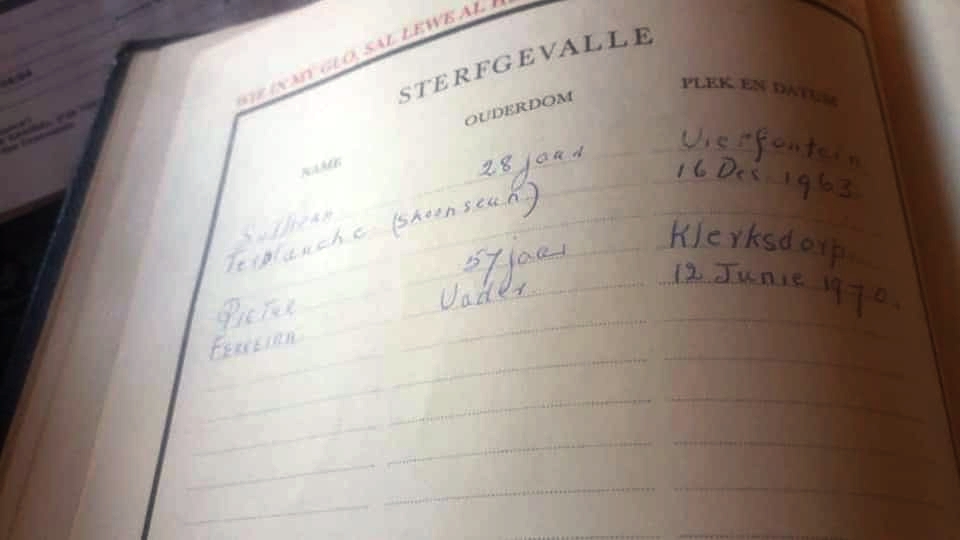 WIE IN MY GLO, SAL LEWE AL
STERFGEVALLE
NAME
OUDERDOM
PLEK EN DATUM
28 jaar
Vierfontein
Terblanche (skoonseun)
16 Des. 1963
Pieter
57 jaar
Klerksdorp.
Fereeira
Vader
12 Junie 1970.